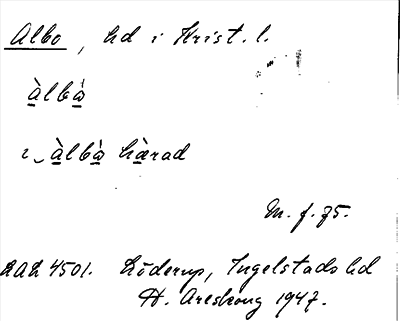 Albo, hd i Krist. l.
àlbà
i ‿ àlbà hàrad
M. f. 75.
LAL 4501. Löderup, Ingelstads hd
H. Areskoug 1947.